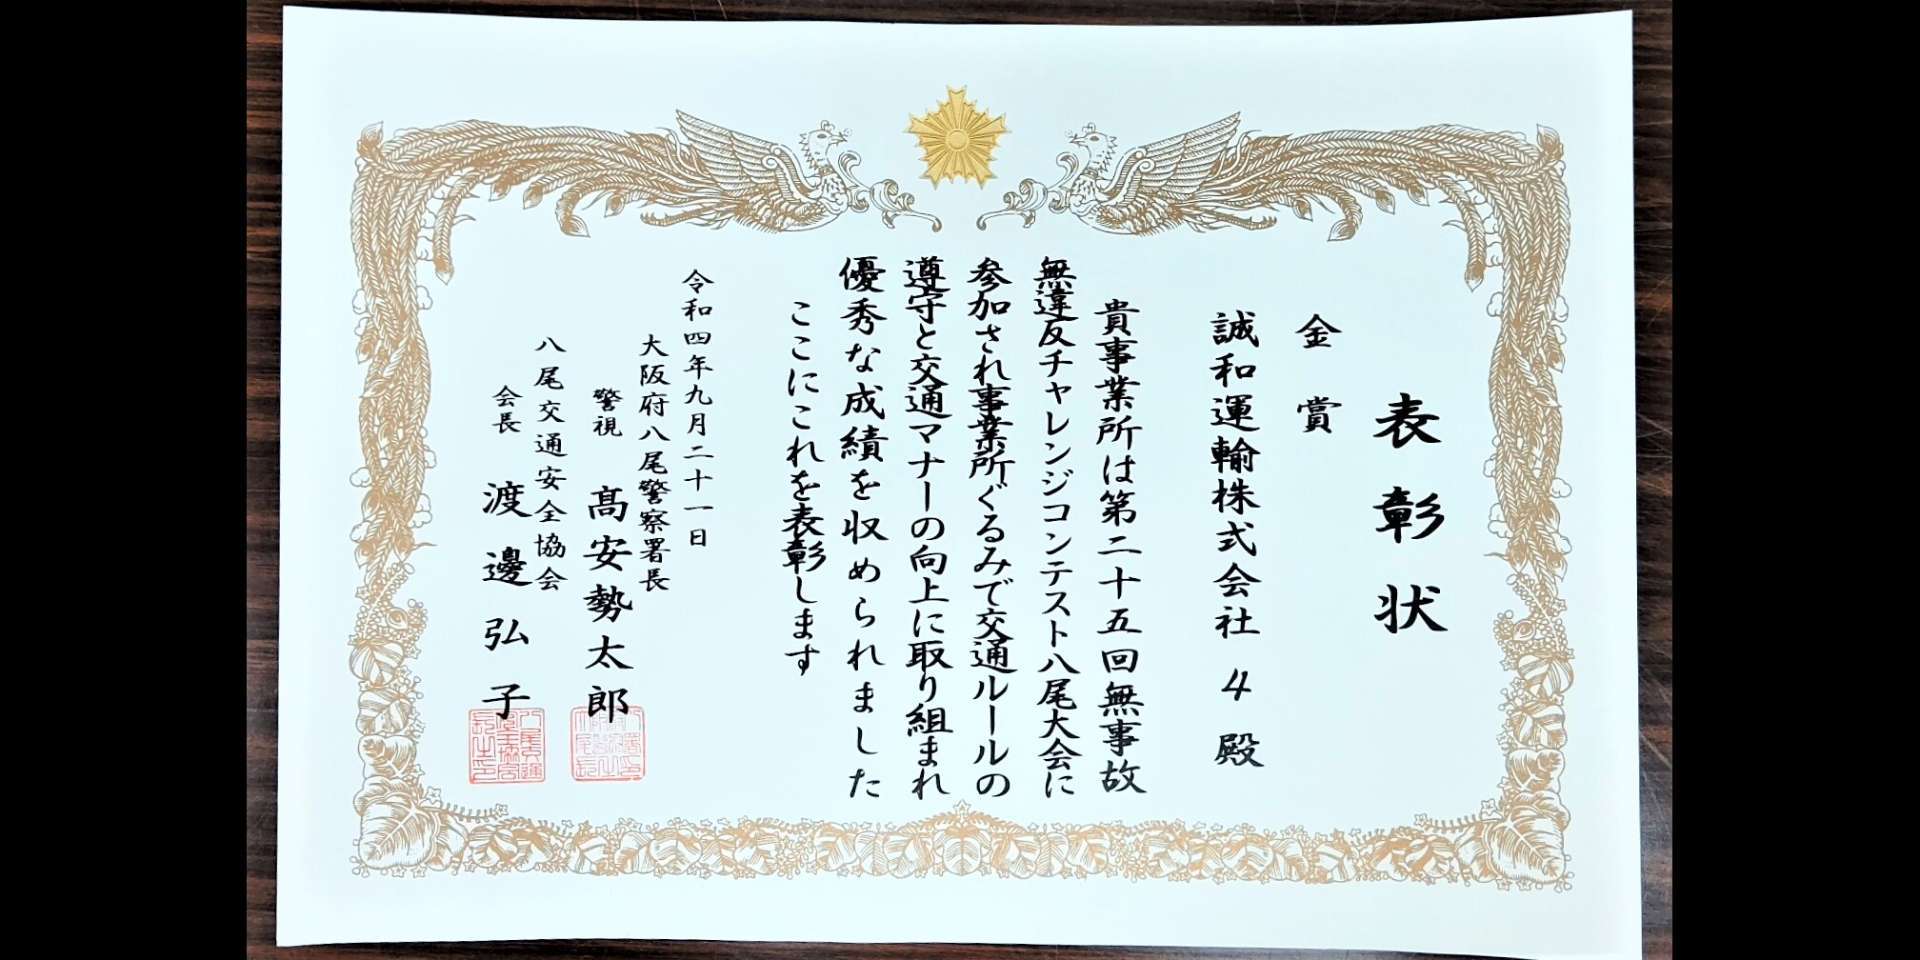 表彰状
金賞
誠和運輸株式会社 4 殿
貴事業所は第二十五回無事故
無違反チャレンジコンテスト八尾大会に
参加され事業所ぐるみで交通ルールの
遵守と交通マナーの向上に取り組まれ
優秀な成績を収められました
ここにこれを表彰します
令和四年九月二十一日
大阪府八尾警察署長
警視 髙安勢太郎
八尾交通安全協会
会長 渡邊弘子